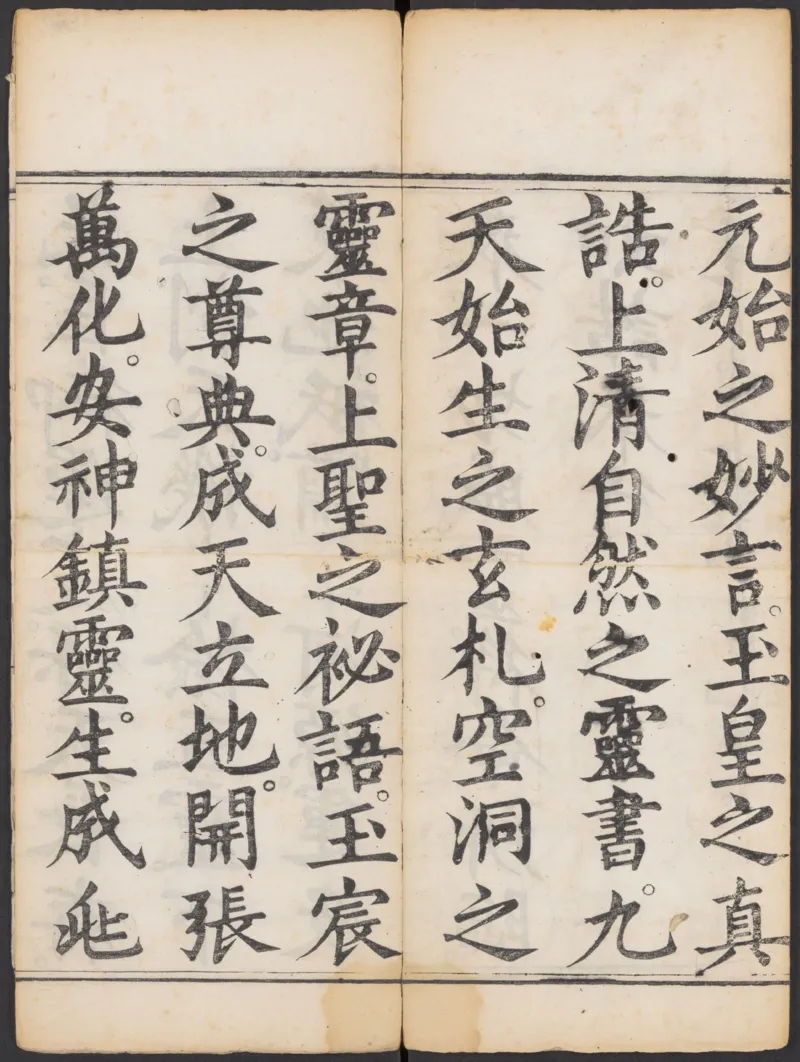 元始之妙言。玉皇之真
誥。上清自然之靈書。九
天始生之玄札。空洞之
靈章。上聖之祕語。玉宸
之尊典。成天立地。開張
萬化。安神鎮靈。生成兆